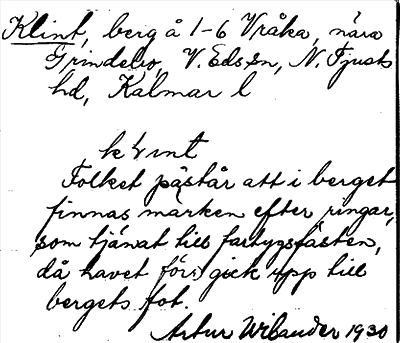 Klint, berg å 1-6 Vråka, nära
Grindebo, V. Eds sn, N. Tjusts
hd, Kalmar l
Folket påstår att i berget
finnas märken efter ringar,
som tjänat till fartygsfästen,
då havet förr gick upp till
bergets fot.
Artur Wilander 1930